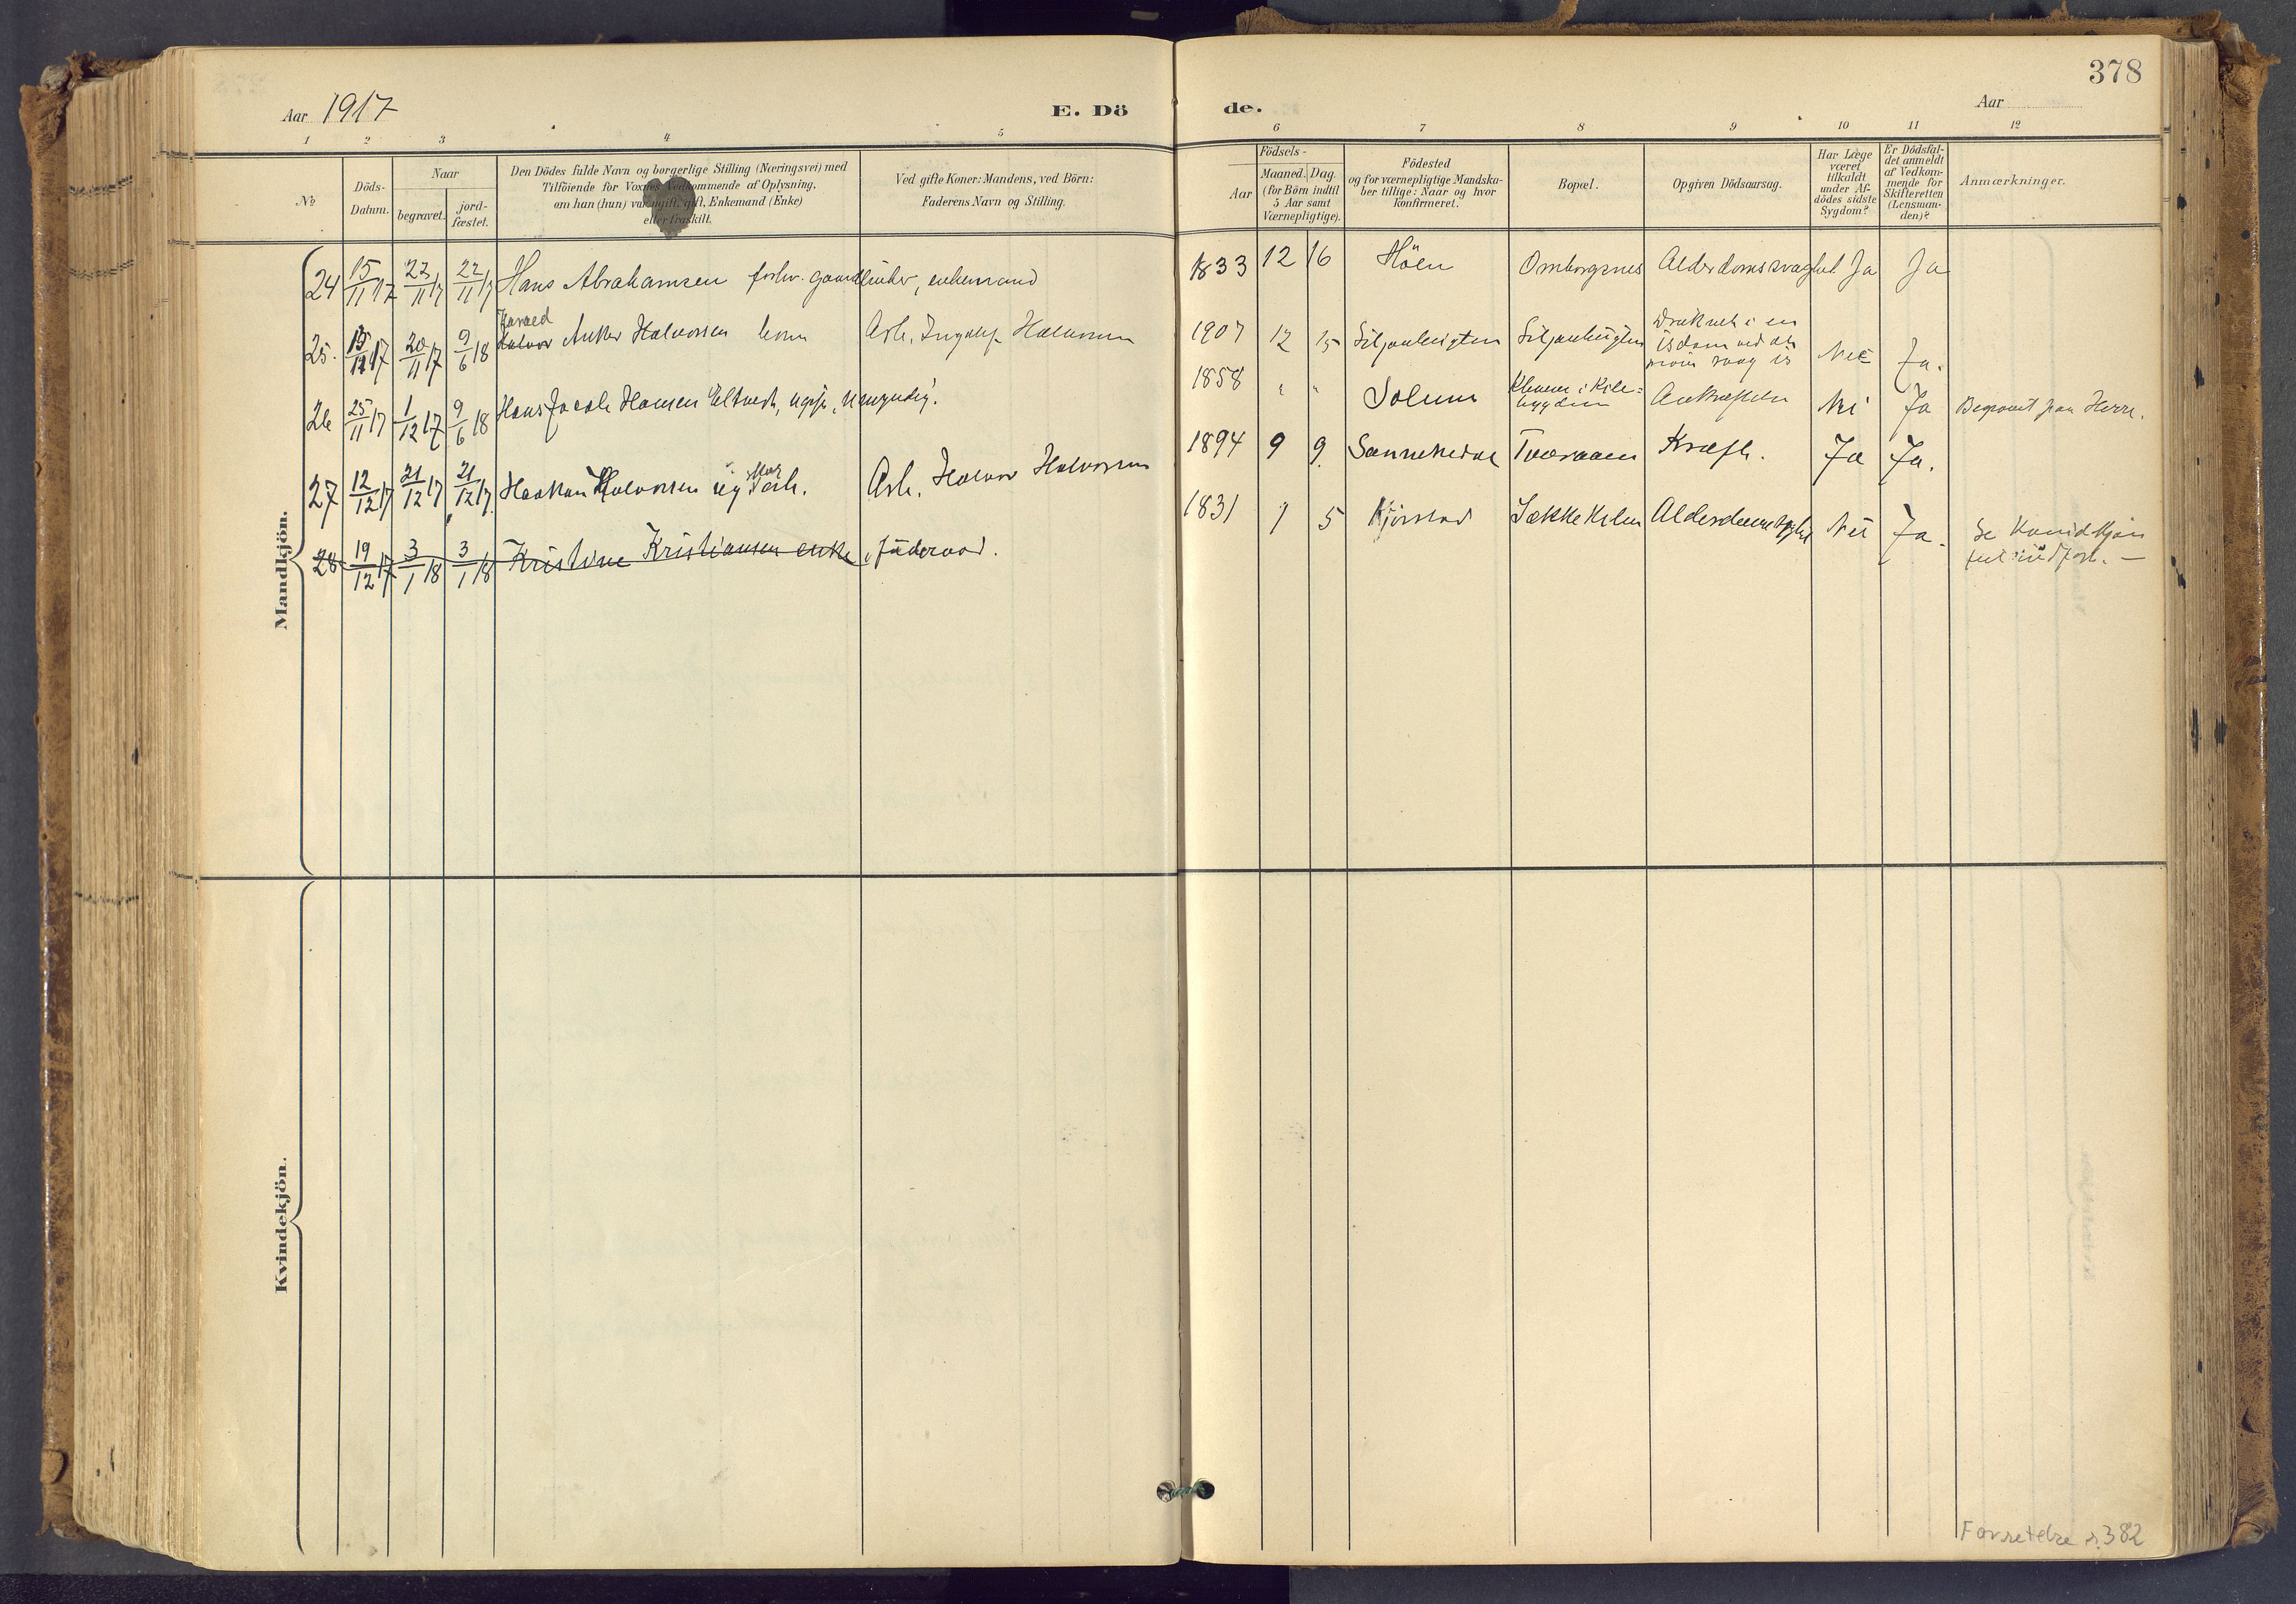 378
Aar 1917
E. Dö
de.
Aar
1 2 3 4 5
6 7 8 9 10 11 12
№
Döds-
Datum.
Naar
begravet.
jord-
fæstet.
Den Dödes fulde Navn og borgerlige Stilling (Næringsvei) med
Tilföiende for Voxnes Vedkommende af Oplysning,
om han (hun) var ugift, gift, Enkemand (Enke)
eller fraskilt.
Ved gifte Koner: Mandens, ved Börn:
Faderens Navn og Stilling.
Födsels-
Aar
Maaned. Dag.
(for Börn indtil
5 Aar samt
Værnepligtige).
Födested
og for værnepligtige Mandska-
ber tillige: Naar og hvor
konfirmeret.
Bopæl.
Opgiven Dödsaarsag.
Har Læge
været
tilkaldt
under Af-
dödes sidste
Sygdom?
Er Dödsfal-
det anmeldt
af Vedkom-
mende for
Skifteretten
(Lensman-
den)?
Anmærkninger.
Mandkjön.
24 15/11 17 22/11 17 22/11 17 Hans Abrahamsen forhv. gaardbruker, enkemand 1833 12 16 Höen Omborgsnes Alderdomssvaghet Ja Ja
Harald
25. 15/12 17 20/11 17 9/6 18 Halvor Anker Halvorsen Arb. Ingolf Halvorsen 1907 12 15 Siljanbugten Siljanbugten Druknet i en
isdam ved at
svag is Nei Ja.
26 25/11 17 1/12 17 9/6 18 Hans Jacob Hansen Eltvedt, ugift, umyndig. 1858 " " Solum i Kile-
bygden Nei Ja Begravet paa Herre.
27 12/12 17 21/12 17 21/12 17 Haakon Halvorsen ug arb. Arb. Halvor Halvorsen 1894 9 9. Sannikedal Tveraaen Kræft. Ja Ja.
28 19/12 17 3/1 18 3/1 18 Kristine Kristiansen enke, föderaad. 1831 7 5 Kjörstad Sækkekilen Alderdomssvaghet Nei Ja. Se Kvindkjön
feil indført. —
Kvindekjön.
Forsettelse s. 382